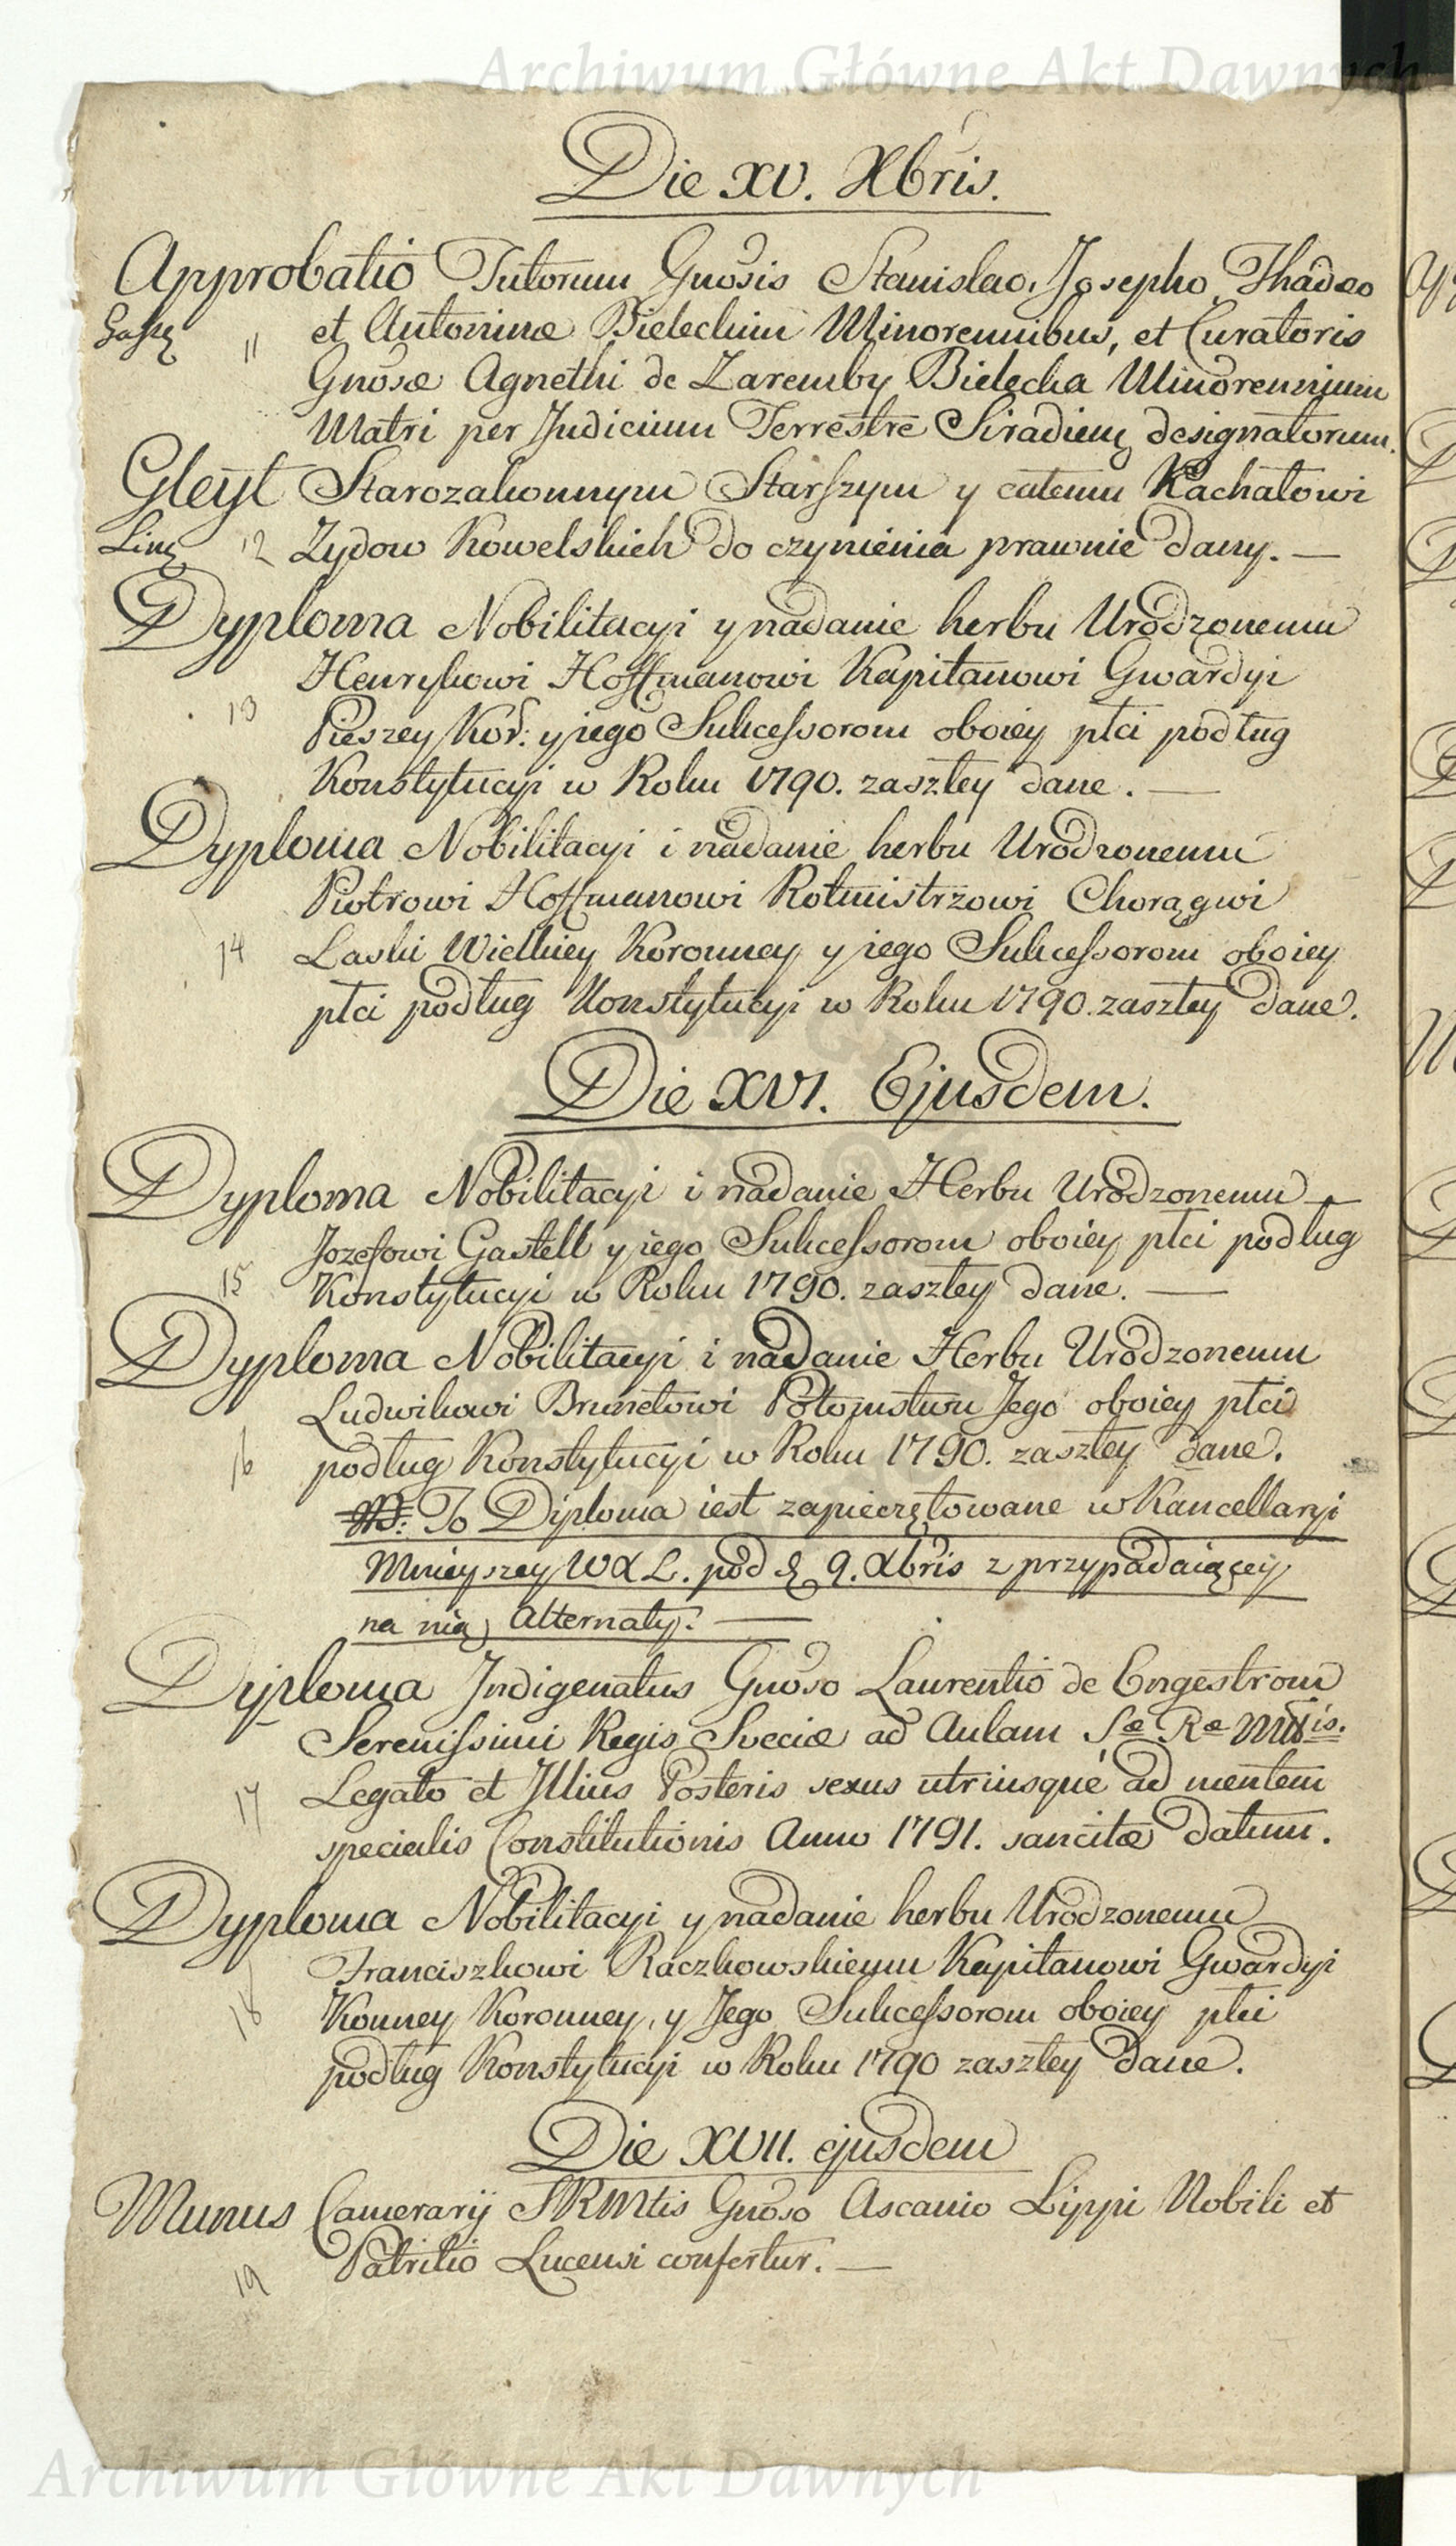 Archiwum Główne Akt Dawnych
Die XV. Xbris.
Approbatio Tutorum Gnosis Stanislao, Josepho, Thadæo
et Antoninæ Bieleckim Minorennibus, et Curatoris
11
Gnosæ Agnethi de Zaremby Bielecka Minorennium
Matri per Judicium Terrestre Siradien designatorum.
Gleyt Starozakonnym Starszym y całemu Kachałowi
12 Zydow Kowelskich do czynienia prawnie dany. —
Dyploma Nobilitacyi y nadanie herbu Urodzonemu
Henrykowi Hoffmanowi Kapitanowi Gwardyi
13
Pieszey Kor: y jego Sukcessorom oboiey płci podług
Konstytucyi w Roku 1790. zaszłey dane. —
Dyploma Nobilitacyi i nadanie herbu Urodzonemu
Piotrowi Hoffmanowi Rotmistrzowi Chorągwi
14 Laski Wielkiey Koronney y jego Sukcessorom oboiey
płci podług Konstytucyi w Roku 1790. zaszłey dane.
Die XVI. Ejusdem.
Dyploma Nobilitacyi i nadanie Herbu Urodzonemu —
Jozefowi Gastell y jego Sukcessorom oboiey płci podług
15 Konstytucyi w Roku 1790. zaszłey dane. —
Dyploma Nobilitacyi i nadanie Herbu Urodzonemu
Ludwikowi Brunetowi Potomstwu Jego oboiey płci
16 podług Konstytucyi w Roku 1790. zaszłey dane.
To Diploma iest zapieczętowane w Kancellaryi
Mnieyszey WXL. pod d. 9. Xbris z przypadaiącey
na nią Alternaty. —
Dyploma Indigenatus Gnoso Laurentio de Engestrom
Serenissimi Regis Sveciæ ad Aulam Sæ Ræ Mttis.
17 Legato et Illius Posteris sexus utriusque ad mentem
specialis Constitutionis Anno 1791. sancitæ datum.
Dyploma Nobilitacyi y nadanie herbu Urodzonemu
Franciszkowi Raczkowskiemu Kapitanowi Gwardyi
18 Konney Koronney, y Jego Sukcessorom oboiey płci
podług Konstytucyi w Roku 1790 zaszłey dane.
Die XVII. ejusdem
Munus Camerarij SRMtis Gnoso Ascanio Lippi Nobili et
19 Patritio Lucensi confertur. —
Archiwum Główne Akt Dawnych